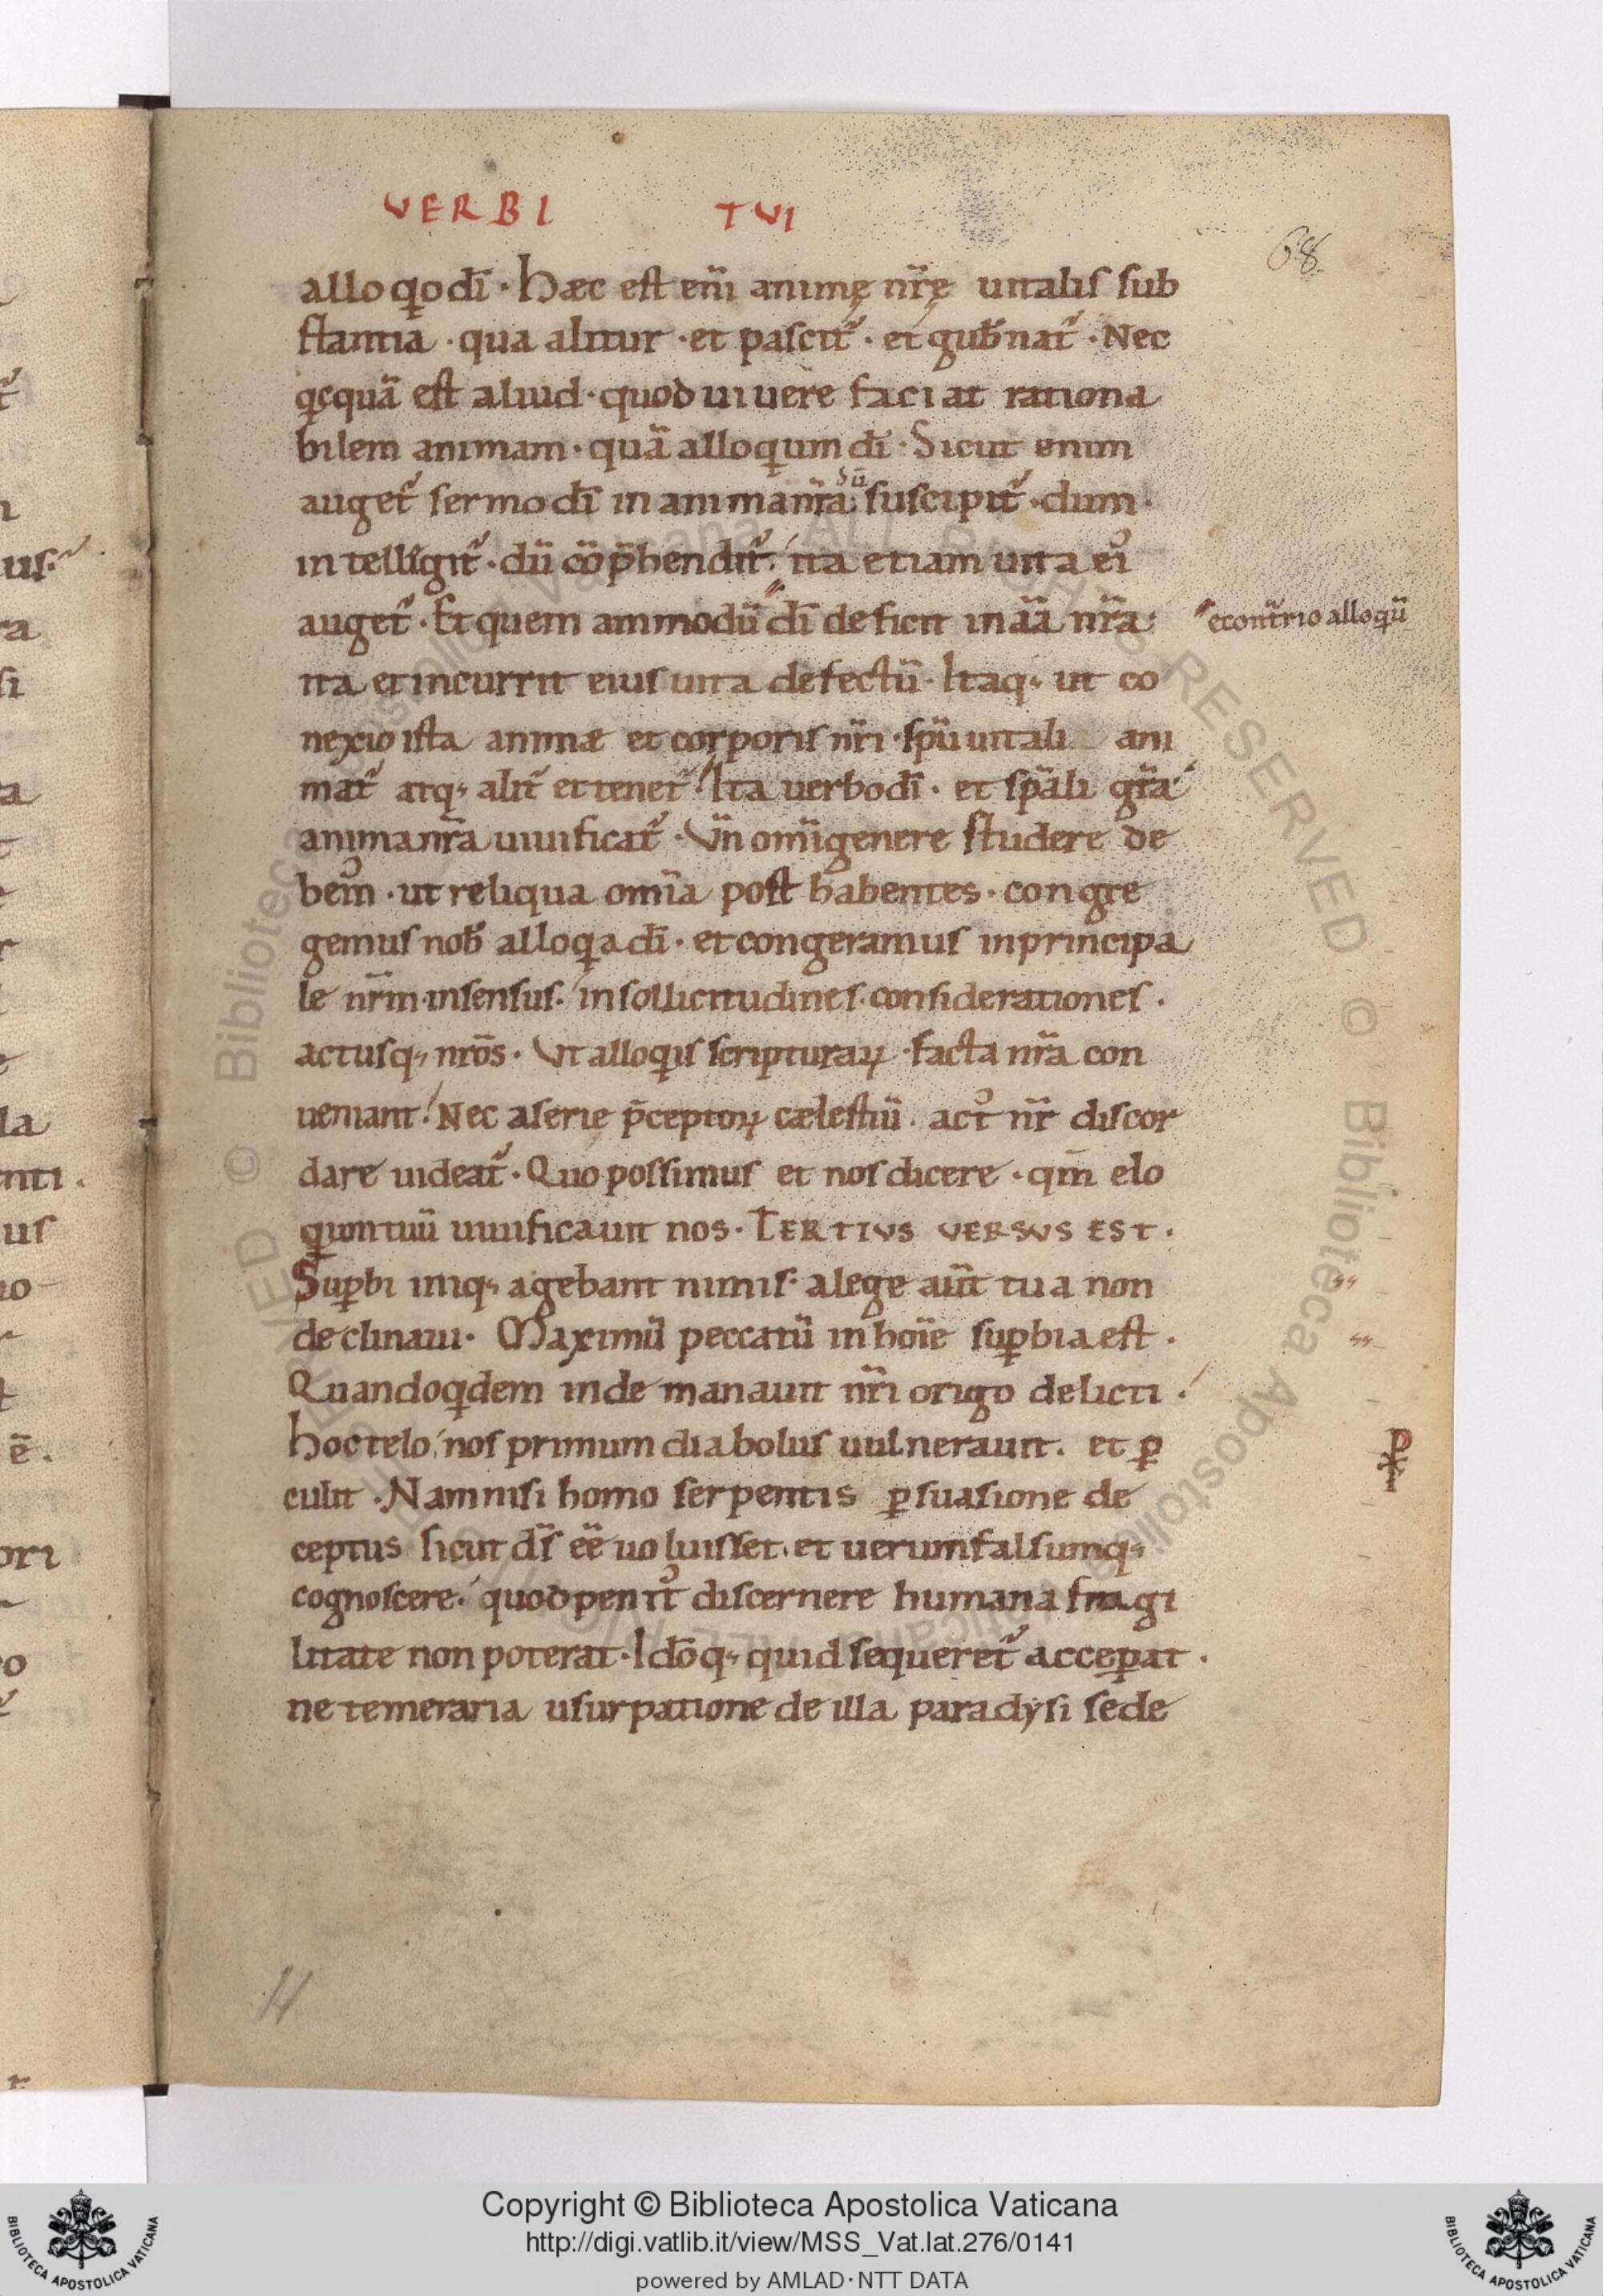 VERBI TVI
68
alloq̅o dī · Hæc est eni̅ animę nr̅ę uitalis sub
stantia · qua alitur · et pascit᷑ · et gub̅nat᷑ · Nec
q̅cquā est aliud · quod uiuere faciat rationa
bilem animam · quā alloq̅um dī · Sicut enim
auget᷑ sermo dī in anima nr̅a · dū suscipit᷑ · dum ·
intelligit᷑ · dū cōp̅hendit᷑ · ita etiam uita ei᾽
auget᷑ · Et quem ammodū dī deficit in āā nr̅a ·
econtr̅rio alloq̅ū
ita et incurrit eius uita defectū · Itaq; ut co
nexio ista animæ et corporis nr̅i · sp̅u uitali ani
mat᷑ atq; alit᷑ et tenet᷑ · Ita uerbo dī · et sp̅ali gr̅a
anima nr̅a uiuificat᷑ · Vn̅ omi̅ genere studere de
bem᾽ · ut reliqua omi̅a post habentes · congre
gemus nob̅ alloq̅a dī · et congeramus in principa
le nr̅m · in sensus · in sollicitudines · considerationes ·
actusq; nr̅os · Vt alloq̅is scripturaꝝ · facta nr̅a con
ueniant · Nec a serie p̅ceptoꝝ cælestiū · act᾽ nr̅ discor
dare uideat᷑ · Quo possimus et nos dicere · qm̅ elo
quium tuū uiuificauit nos · TERTIVS VERSVS EST ·
Suꝑbi iniq; agebant nimis · a lege aūt tua non
declinaui · Maximū peccatū in hōie suꝑbia est ·
Quandoq̅dem inde manauit nr̅i origo delicti ·
hoc telo nos primum diabolus uulnerauit · et ꝑ
culit · Nam nisi homo serpentis ꝑsuasione de
ceptus sicut d̅s ēē uoluisset · et uerum falsumq;
cognoscere · quod penit᾽ discernere humana fragi
litate non poterat · Id̅oq; quid sequeret᷑ acceꝑat ·
ne temeraria usurpatione de illa paradysi sede
Copyright © Biblioteca Apostolica Vaticana
http://digi.vatlib.it/view/MSS_Vat.lat.276/0141
powered by AMLAD·NTT DATA